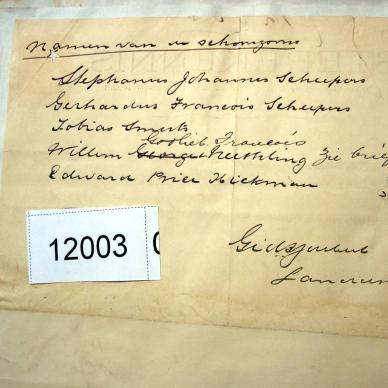 Namen van de schoonzoons
Stephanus Johannes Scheepers
Gerhardus Francois Scheepers
Tobias Smuts
Gotlieb Francois
Willem George Neethling Zie brief
Edward Price Hickman
12003